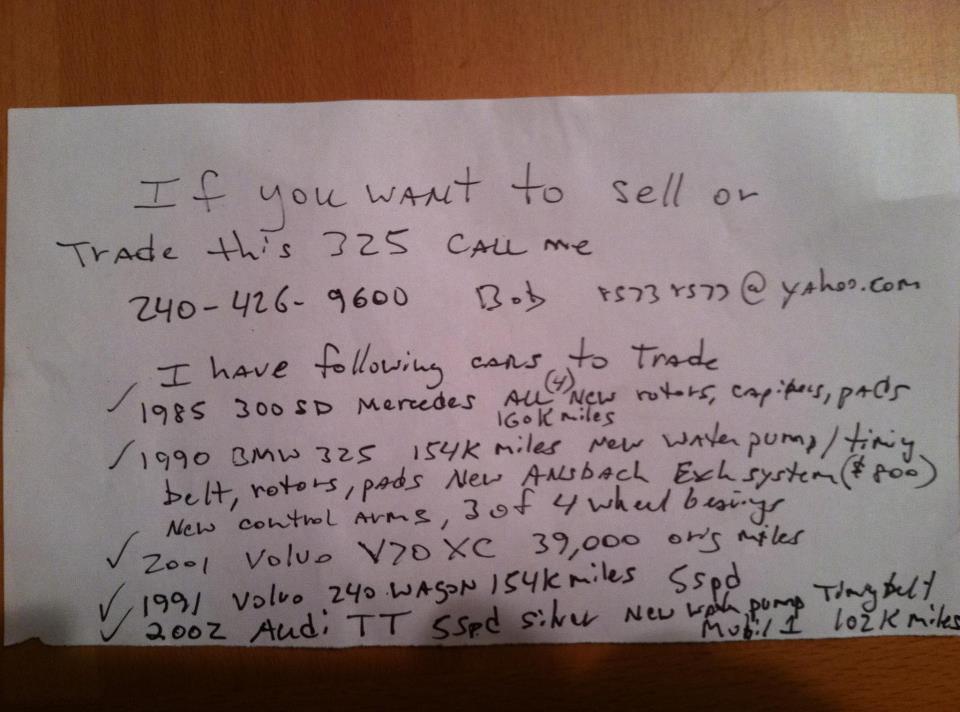 If you WANT to sell or
TRADE this 325 CALL me
240-426-9600 Bob @ yahoo.com
I have following CARS to Trade
✓ 1985 300SD Mercedes ALL (4) New rotors, capibers, pADs
160K miles
✓ 1990 BMW 325 154K miles New water pump/timing
belt, rotors, pADs New ANSBACH Exh system ($800)
New control Arms, 3 of 4 wheel bearings
✓ 2001 Volvo V70 XC 39,000 orig miles
✓ 1991 Volvo 240 WAGON 154K miles 5spd
✓ 2002 Audi TT 5spd silver New pump Timing belt
Mobil 1 102K miles